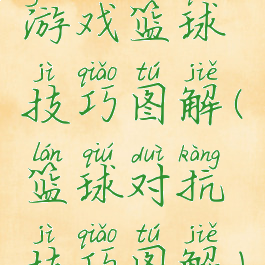 游戏篮球
jì qiǎo tú jiě
技巧图解(
lán qiú duì kàng
篮球对抗
jì qiǎo tú jiě
技巧图解)